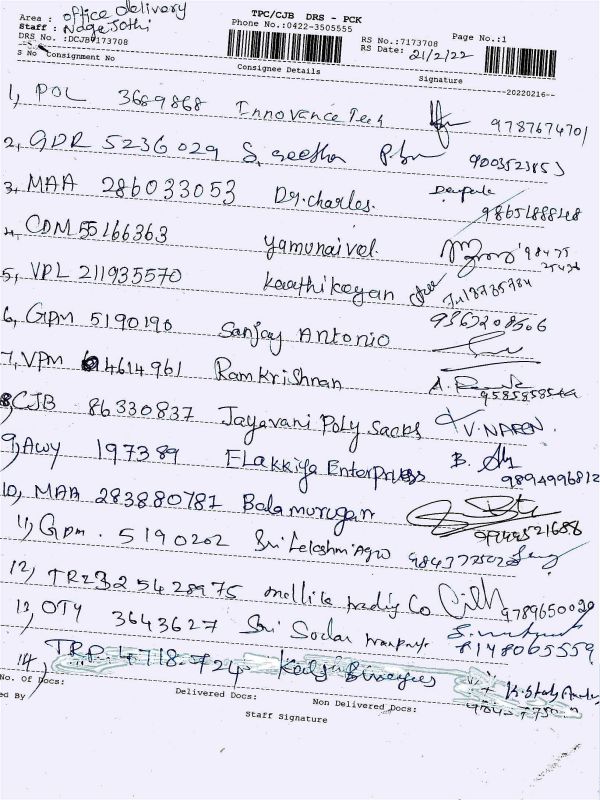 TPC/CJB DRS - PCK
Area : office delivery
Phone No.:0422-3505555
Staff :
RS No.:7173708 Page No.:1
DRS No. :DCJB7173708
RS Date: 21/2/22
S No Consignment No Consignee Details Signature
--20220216--
1, POL 3689868 Innovance Tech 9787674701
2, GDR 5236029 S. Geetha
3, MAA 286033053 Dr. charles. 9865188848
4, CDM 55166363 yamunaivel
5, VPL 211935570 Kaathikeyan
6, GPM 5190190 Sanjay Antonio 9363208506
7, VPM 4614961 Ramkrishnan
8, CJB 86330837 Jayavani Poly Sacks V. NAREN.
9, AWY 197389 ELakkiya Enterprises B. 9894996812
10, MAA 283880781 Balamurugan
11) GPM. 5190202 Sri Lelashmi Agro
12) TRZ 325428975 mallika trading Co 9789650020
13, OTY 3643627 Sri Sodar 8148065559
14, TRP. 4718.724
No. Of Docs: Delivered Docs: Non Delivered Docs:
ed By
Staff Signature